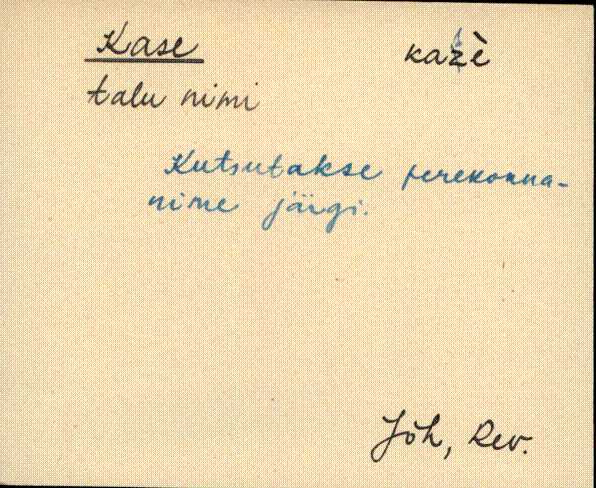 Kase kazè
talu nimi
Kutsutakse perekonna-
nime järgi.
Jõh, Rev.